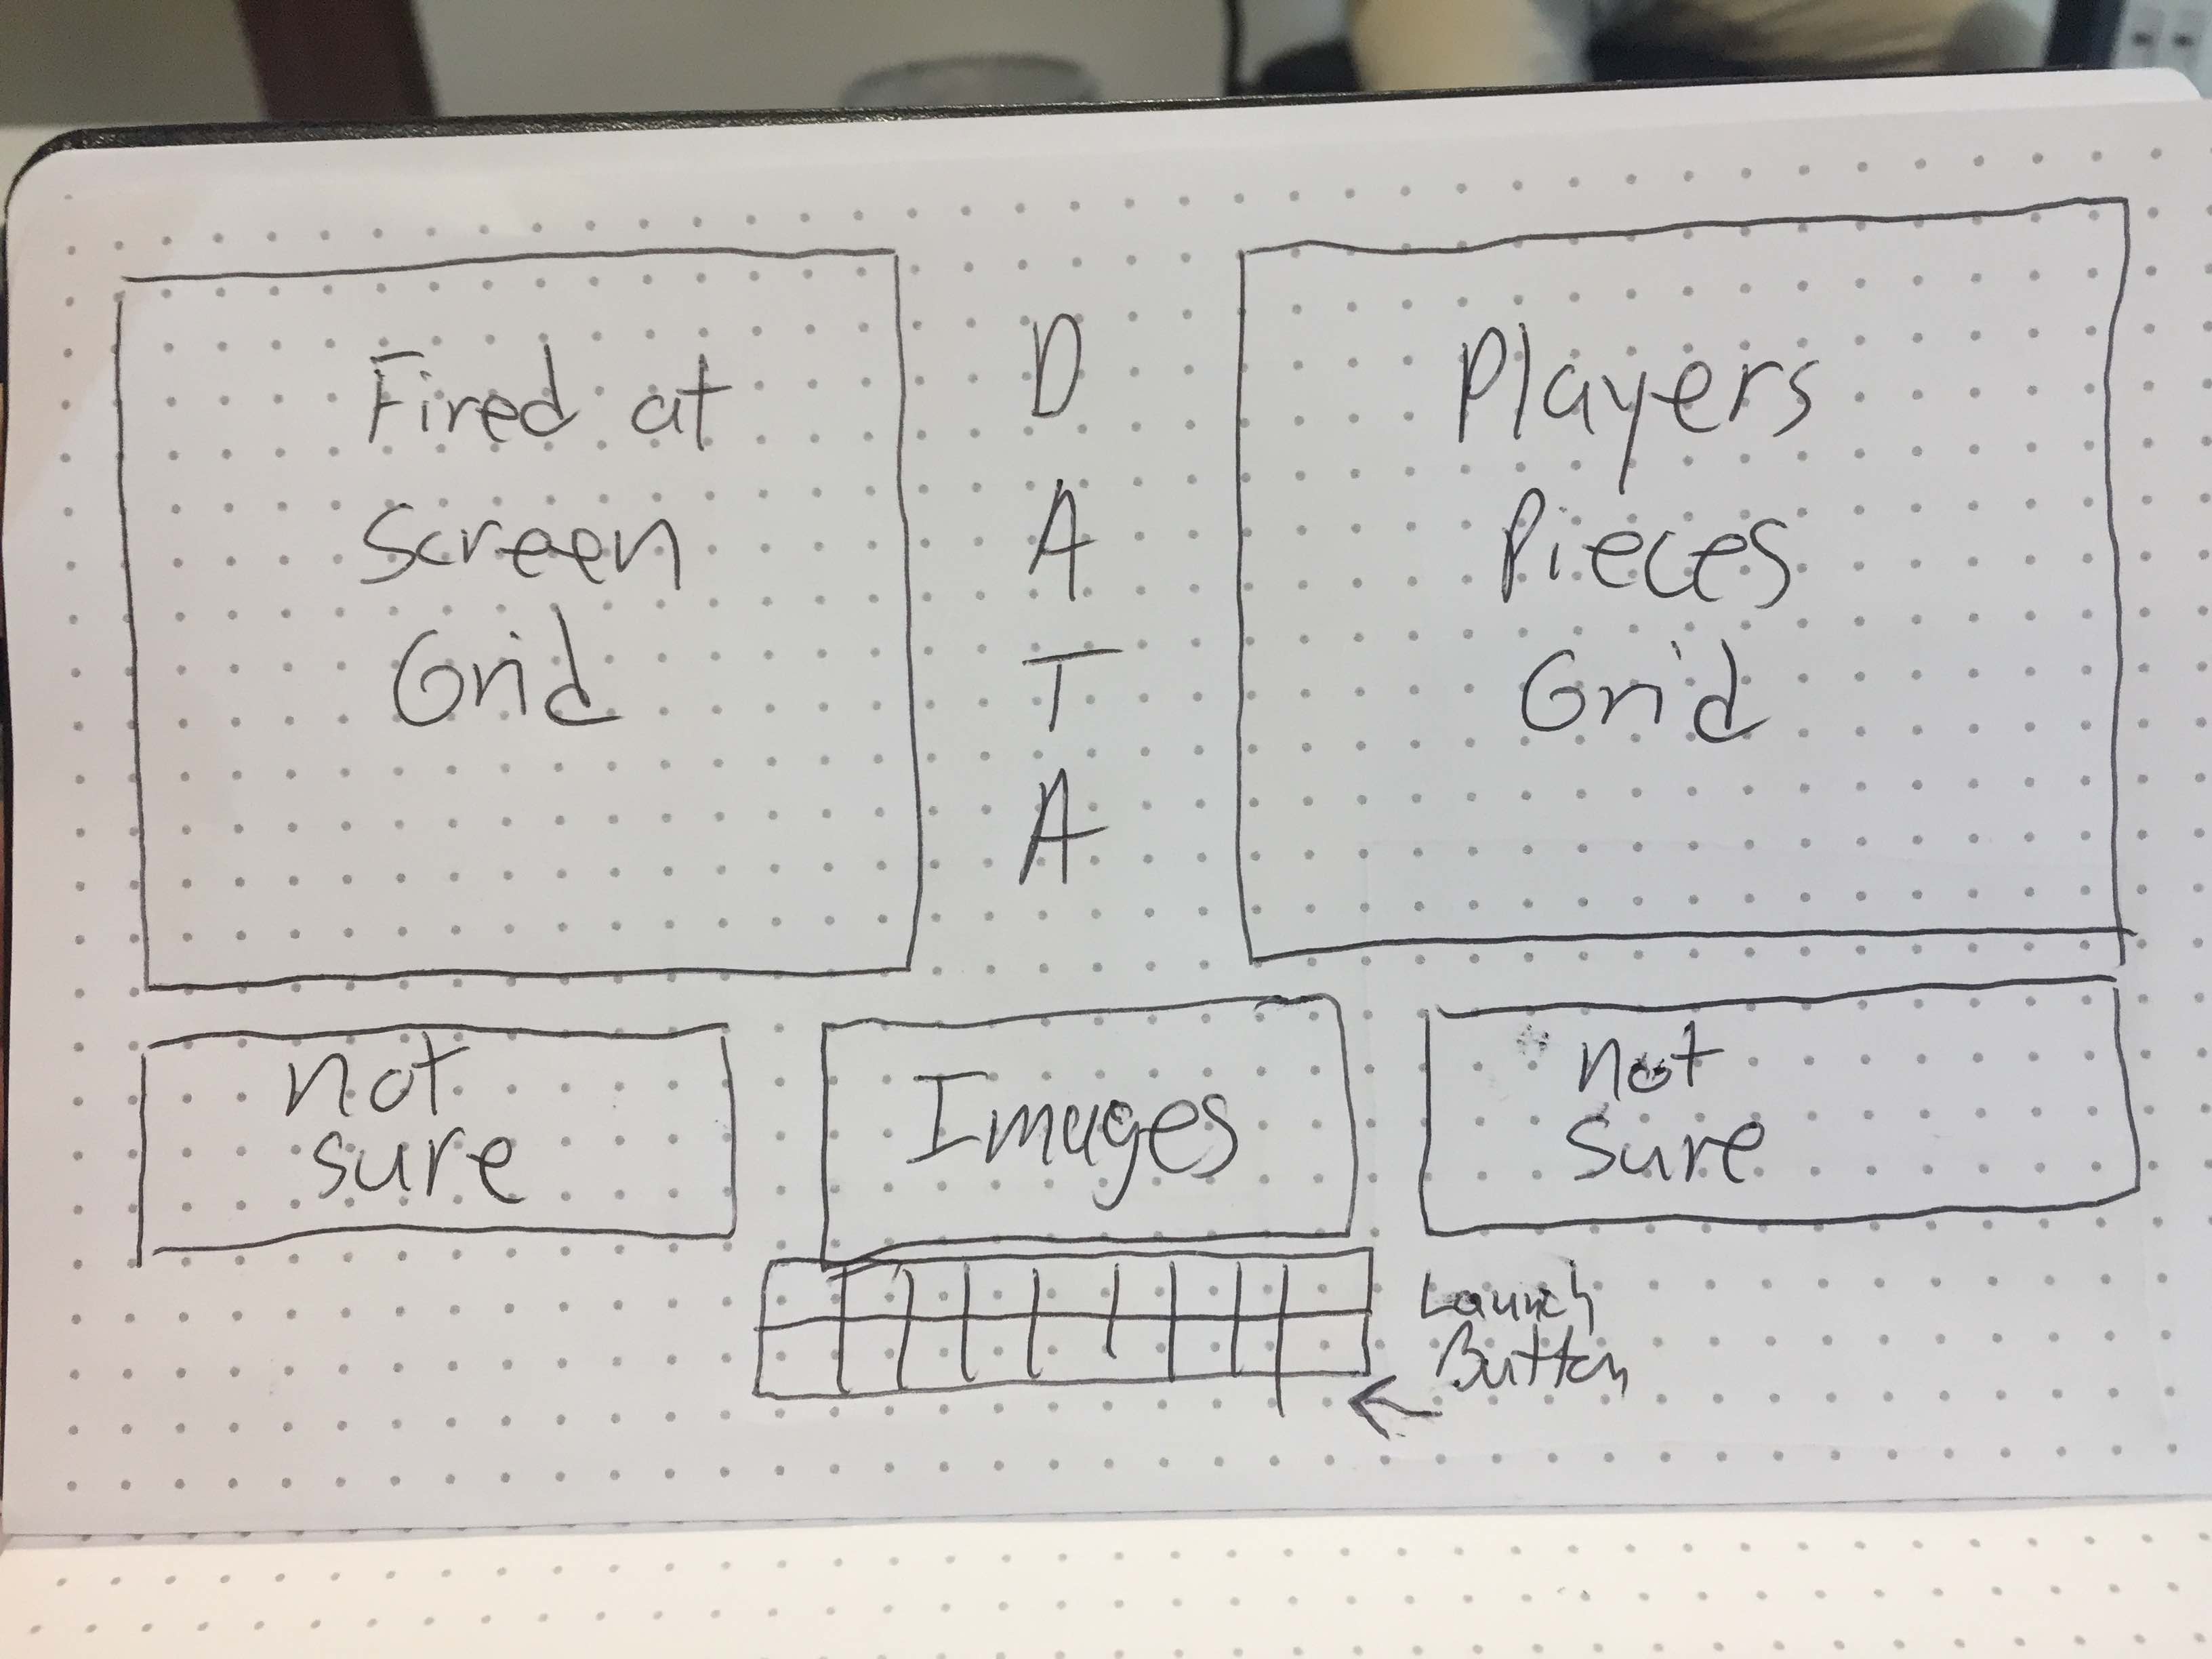 Fired at
Screen
Grid
D
A
T
A
Players
Pieces
Grid
not
sure
Images
not
sure
Launch
Button